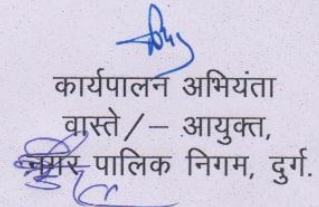 कार्यपालन अभियंता
वास्ते/– आयुक्त,
नगर पालिक निगम, दुर्ग.